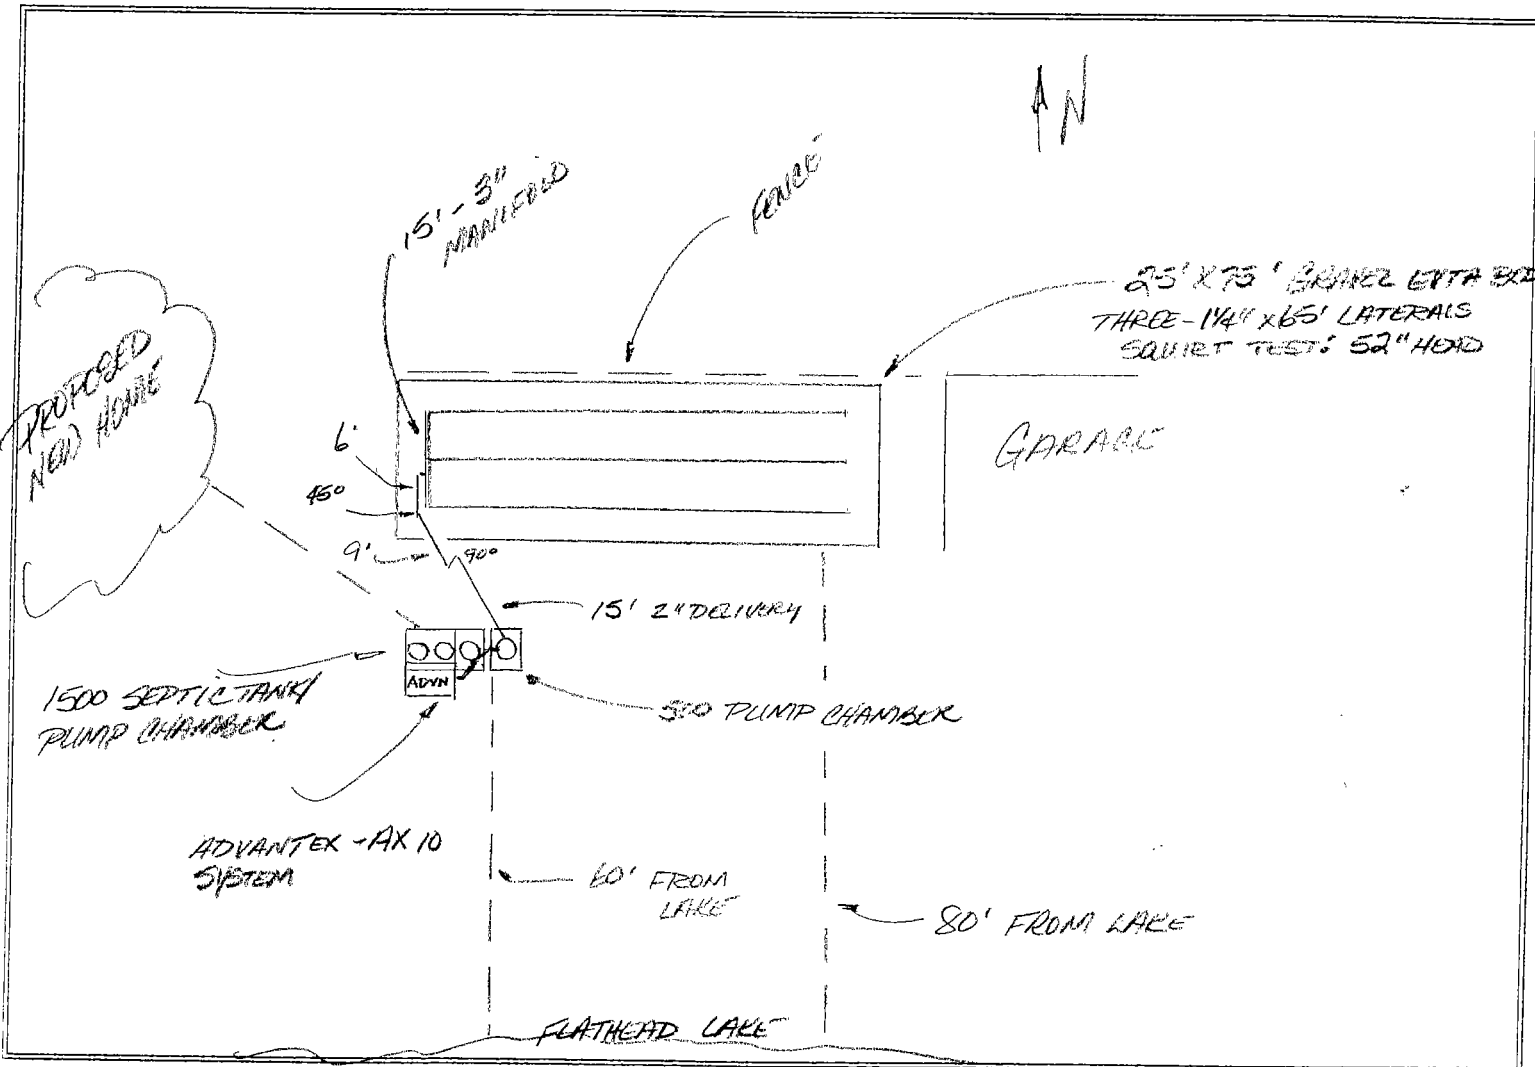 N
15' - 3"
MANIFOLD
FENCE
25' X 75' GRAVEL
THREE - 1 1/4" x 65' LATERALS
SQUIRT TEST: 52" HEAD
PROPOSED
NEW HOME
6'
GARAGE
45°
9'
90°
15' 2" DELIVERY
ADVN
1500 SEPTIC TANK/
PUMP CHAMBER
500 PUMP CHAMBER
ADVANTEX - AX 10
SYSTEM
60' FROM
LAKE
80' FROM LAKE
FLATHEAD LAKE